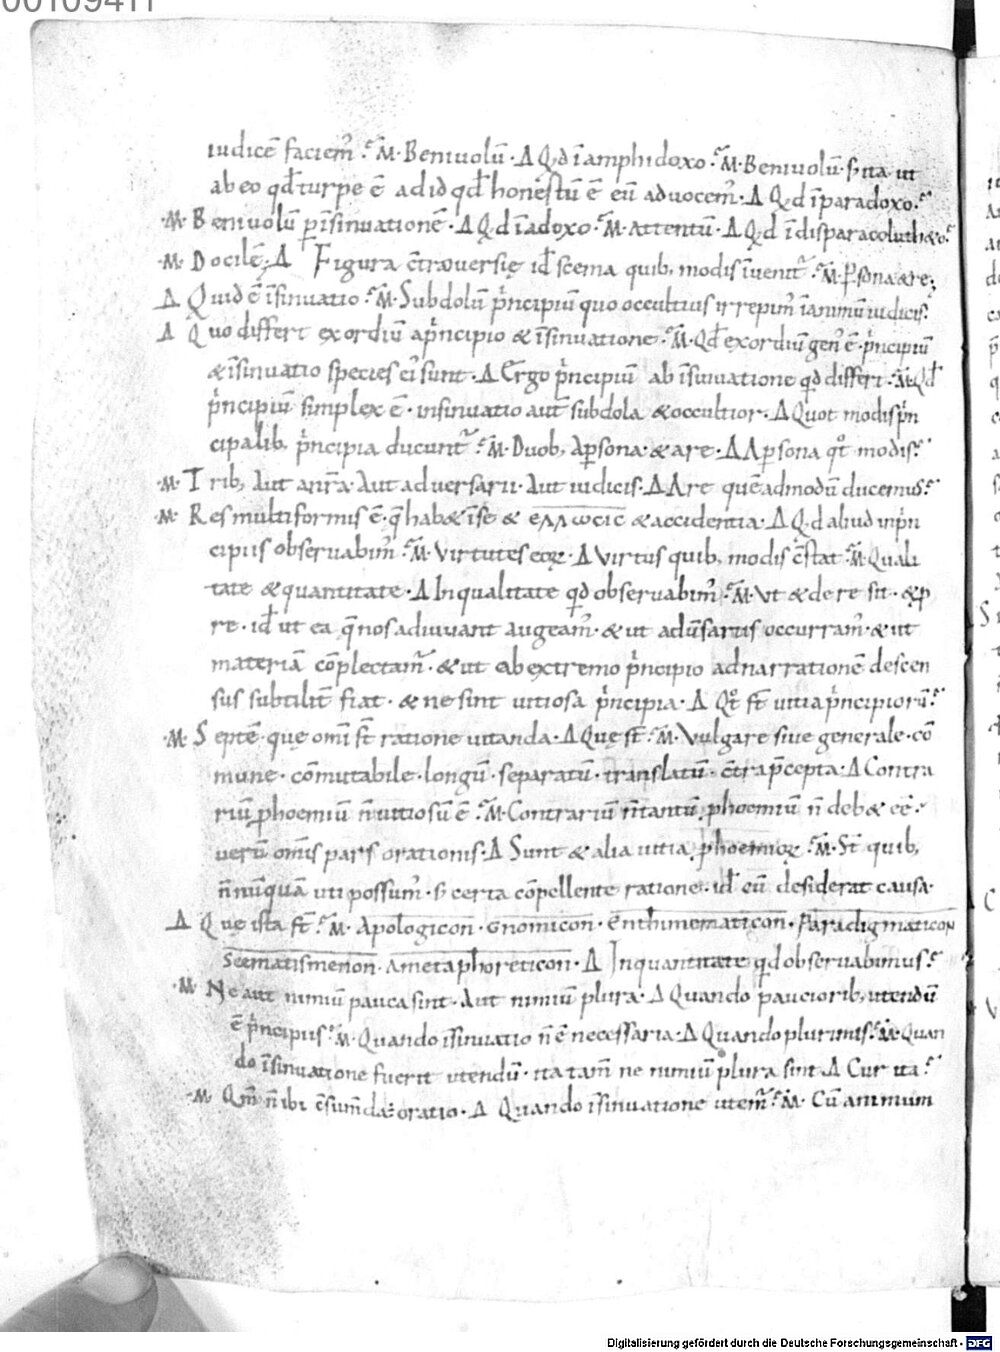 00109411
iudicē faciem̃ ? M̃· Beniuolū · Δ Qd ī amphidoxo ? M̃· Beniuolū · s̄ ita ut
ab eo qđ turpe ē ad id qđ honestū ē eū aduocem̃ · Δ Qd ī paradoxo ?
·M· Beniuolū p īsinuationē · Δ Qd ī adoxo ? M̃· Attentū · Δ Qd ī disparacoluth&o ?
·M· Docilē; Δ Figura c̄trouersię id̄ scema quib; modis īuenit̃ ? M̃· P̱sona & re;
Δ Quid ē īsinuatio ? M̃· Subdolū p̄ncipiū quo occultius irrepim̃ ī animū iudicis ?
Δ Quo differt exordiū a p̄ncipio & īsinuatione ? M̃· Qđ exordiū gen̄ ē · p̄ncipiū
& īsinuatio species ei sunt · Δ Ergo p̄ncipiū ab īsinuatione qd differt · M̃· Qđ
p̄ncipiū simplex ē · insinuatio aut̄ subdola & occultior · Δ Quot modis p̄n
cipalib; p̄ncipia ducunt̃ ? M̃· Duob; a p̱sona · & a re · Δ A p̱sona qt̄ modis ?
·M· Trib; Aut a nr̄a · Aut aduersarii · Aut iudicis · Δ A re quēadmodū ducemus ?
·M· Res multiformis ē · q̄ hab& ī se & ελλωσιc & accidentia · Δ Qd aliud in p̄n
cipiis obseruabim̃ ? M̃· Virtutes eoꝝ · Δ Virtus quib; modis c̄stat ? M̃· Quali
tate & quantitate · Δ In qualitate qd obseruabim̃ ? M̃· Vt & de re sit · & p
re · id̄ ut ea q̄ nos adiuuant augeam̃ · & ut adūsariis occurram̃ · & ut
materiā cōplectam̃ · & ut ab extremo p̄ncipio ad narrationē descen
sus subtilit̄ fiat · & ne sint uitiosa p̄ncipia · Δ Qt̄ st̄ uitia p̄ncipiorū ?
·M· Septē · quę om̄i st̄ ratione uitanda · Δ Quę st̄ ? M̃· Vulgare siue generale · cō
mune · cōmutabile · longū · separatū · translatū · c̄tra p̄cepta · Δ Contra
riū phoemiū n̄ uitiosū ē ? M̃· Contrariū n̄ tantū phoemiū n̄ deb& eē ·
uerū om̄is pars orationis · Δ Sunt & alia uitia phoemioꝝ ? M̃· St̄ quib;
n̄nūquā uti possum̃ · s̄ certa cōpellente ratione · id̄ cū desiderat causa ·
Δ Quę ista st̄ ? M̃· Apologicon · Gnomicon · Enthimematicon · Paradigmaticon
Scematismenon · Ametaphoreticon · Δ In quantitate qd obseruabimus ?
·M· Ne aut nimiū pauca sint · Aut nimiū plura · Δ Quando pauciorib; utendū
ē p̄ncipiis ? M̃· Quando īsinuatio n̄ ē necessaria · Δ Quando plurimis ? M̃· Quan
do īsinuatione fuerit utendū · ita tam̄ ne nimiū plura sint · Δ Cur ita ?
·M· Qm̄ n̄ ibi oratio · Δ Quando īsinuatione utem̃ ? M̃· Cū animum
Digitalisierung gefördert durch die Deutsche Forschungsgemeinschaft - DFG